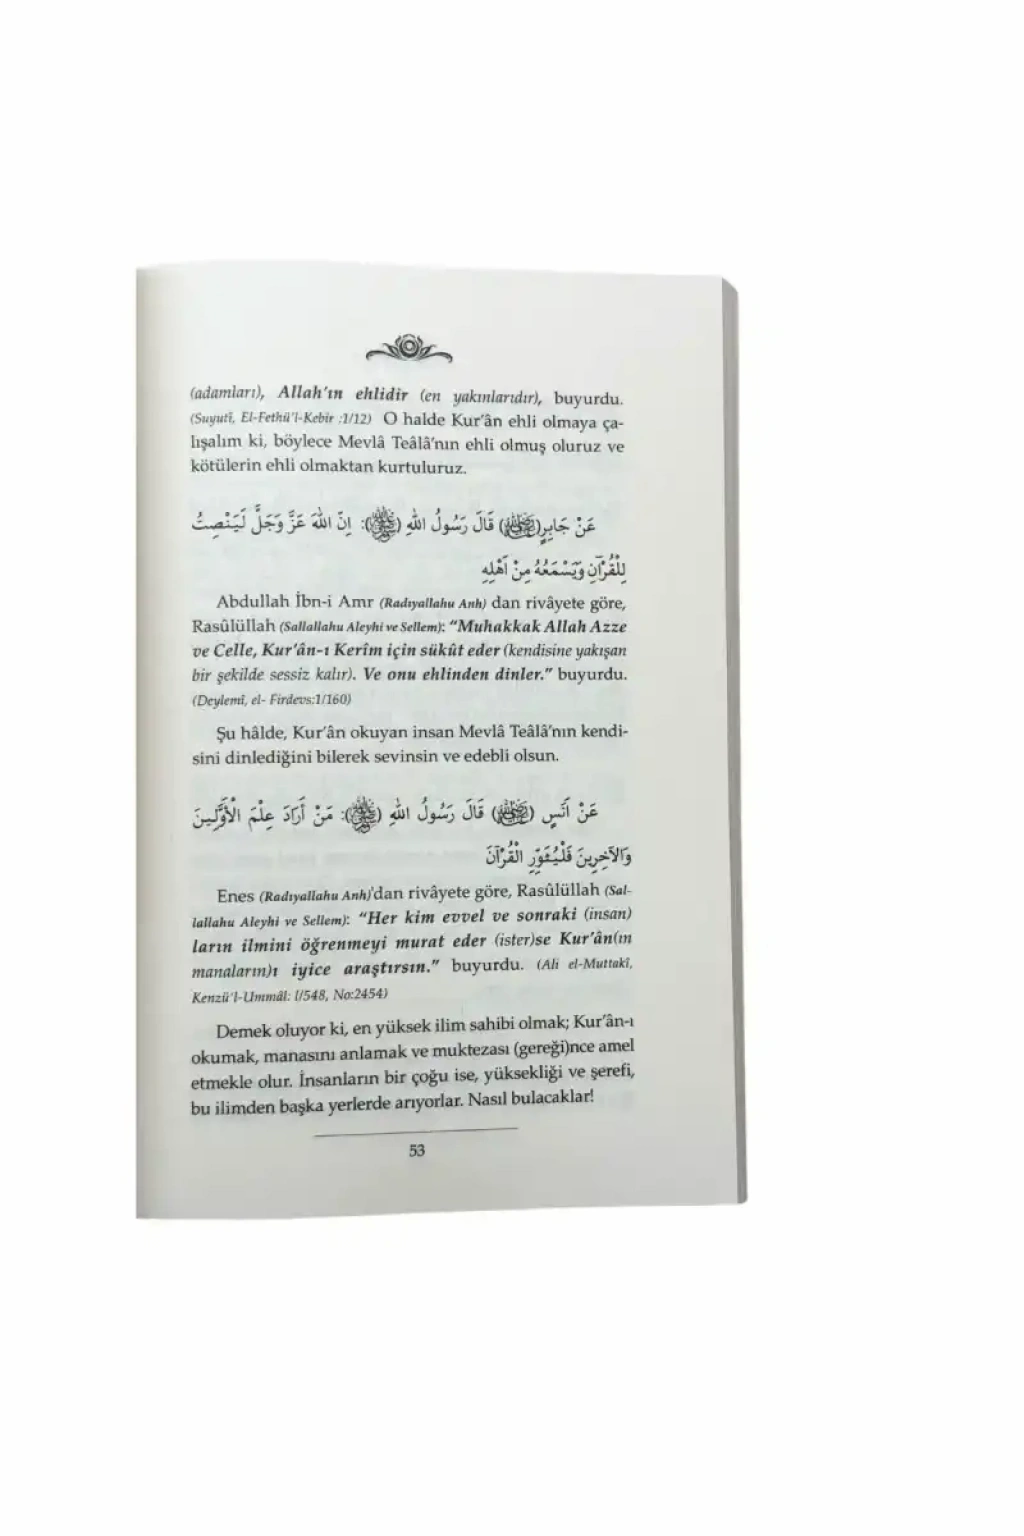 (adamları), Allah'ın ehlidir (en yakınlarıdır), buyurdu.
(Suyutî, El-Fethü'l-Kebir :1/12) O halde Kur'ân ehli olmaya ça-
lışalım ki, böylece Mevlâ Teâlâ'nın ehli olmuş oluruz ve
kötülerin ehli olmaktan kurtuluruz.
عَنْ جَابِرٍ(رضي الله عنه) قَالَ رَسُولُ اللهِ (ﷺ): اِنَّ اللهَ عَزَّ وَجَلَّ لَيَنْصِتُ
لِلْقُرْآنِ وَيَسْمَعُهُ مِنْ اَهْلِهِ
Abdullah İbn-i Amr (Radıyallahu Anh) dan rivâyete göre,
Rasûlüllah (Sallallahu Aleyhi ve Sellem): "Muhakkak Allah Azze
ve Celle, Kur'ân-ı Kerîm için sükût eder (kendisine yakışan
bir şekilde sessiz kalır). Ve onu ehlinden dinler." buyurdu.
(Deylemî, el- Firdevs:1/160)
Şu hâlde, Kur'ân okuyan insan Mevlâ Teâlâ'nın kendi-
sini dinlediğini bilerek sevinsin ve edebli olsun.
عَنْ اَنَسٍ (رضي الله عنه) قَالَ رَسُولُ اللهِ (ﷺ): مَنْ اَرَادَ عِلْمَ الْاَوَّلِينَ
وَالْآخِرِينَ فَلْيُثَوِّرِ الْقُرْآنَ
Enes (Radıyallahu Anh)'dan rivâyete göre, Rasûlüllah (Sal-
lallahu Aleyhi ve Sellem): "Her kim evvel ve sonraki (insan)
ların ilmini öğrenmeyi murat eder (ister)se Kur'ân(ın
manaların)ı iyice araştırsın." buyurdu. (Ali el-Muttakî,
Kenzü'l-Ummâl: 1/548, No:2454)
Demek oluyor ki, en yüksek ilim sahibi olmak; Kur'ân-ı
okumak, manasını anlamak ve muktezası (gereği)nce amel
etmekle olur. İnsanların bir çoğu ise, yüksekliği ve şerefi,
bu ilimden başka yerlerde arıyorlar. Nasıl bulacaklar!
53